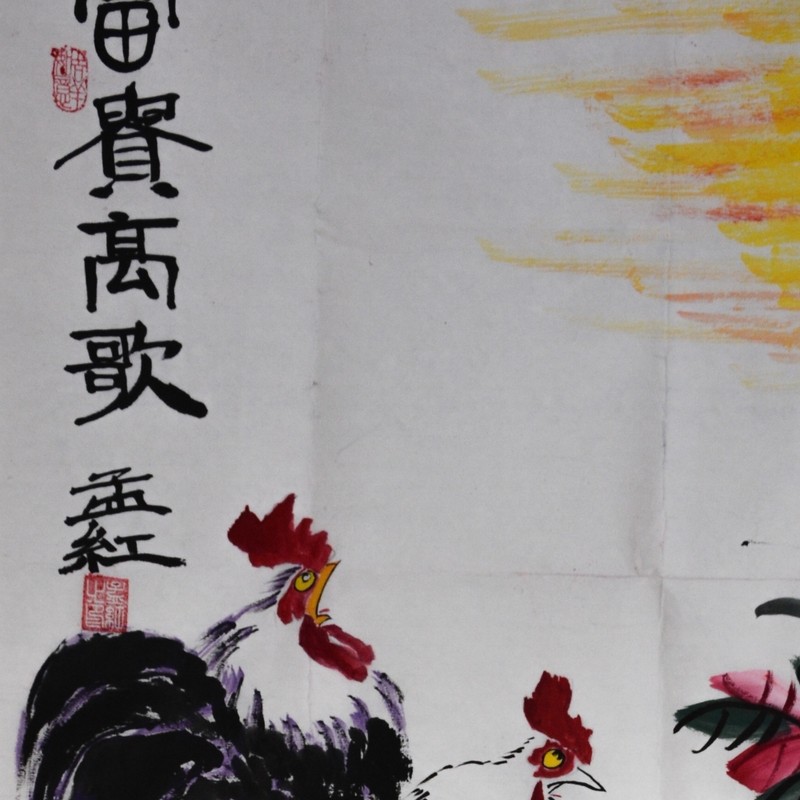 富貴高歌
孟紅